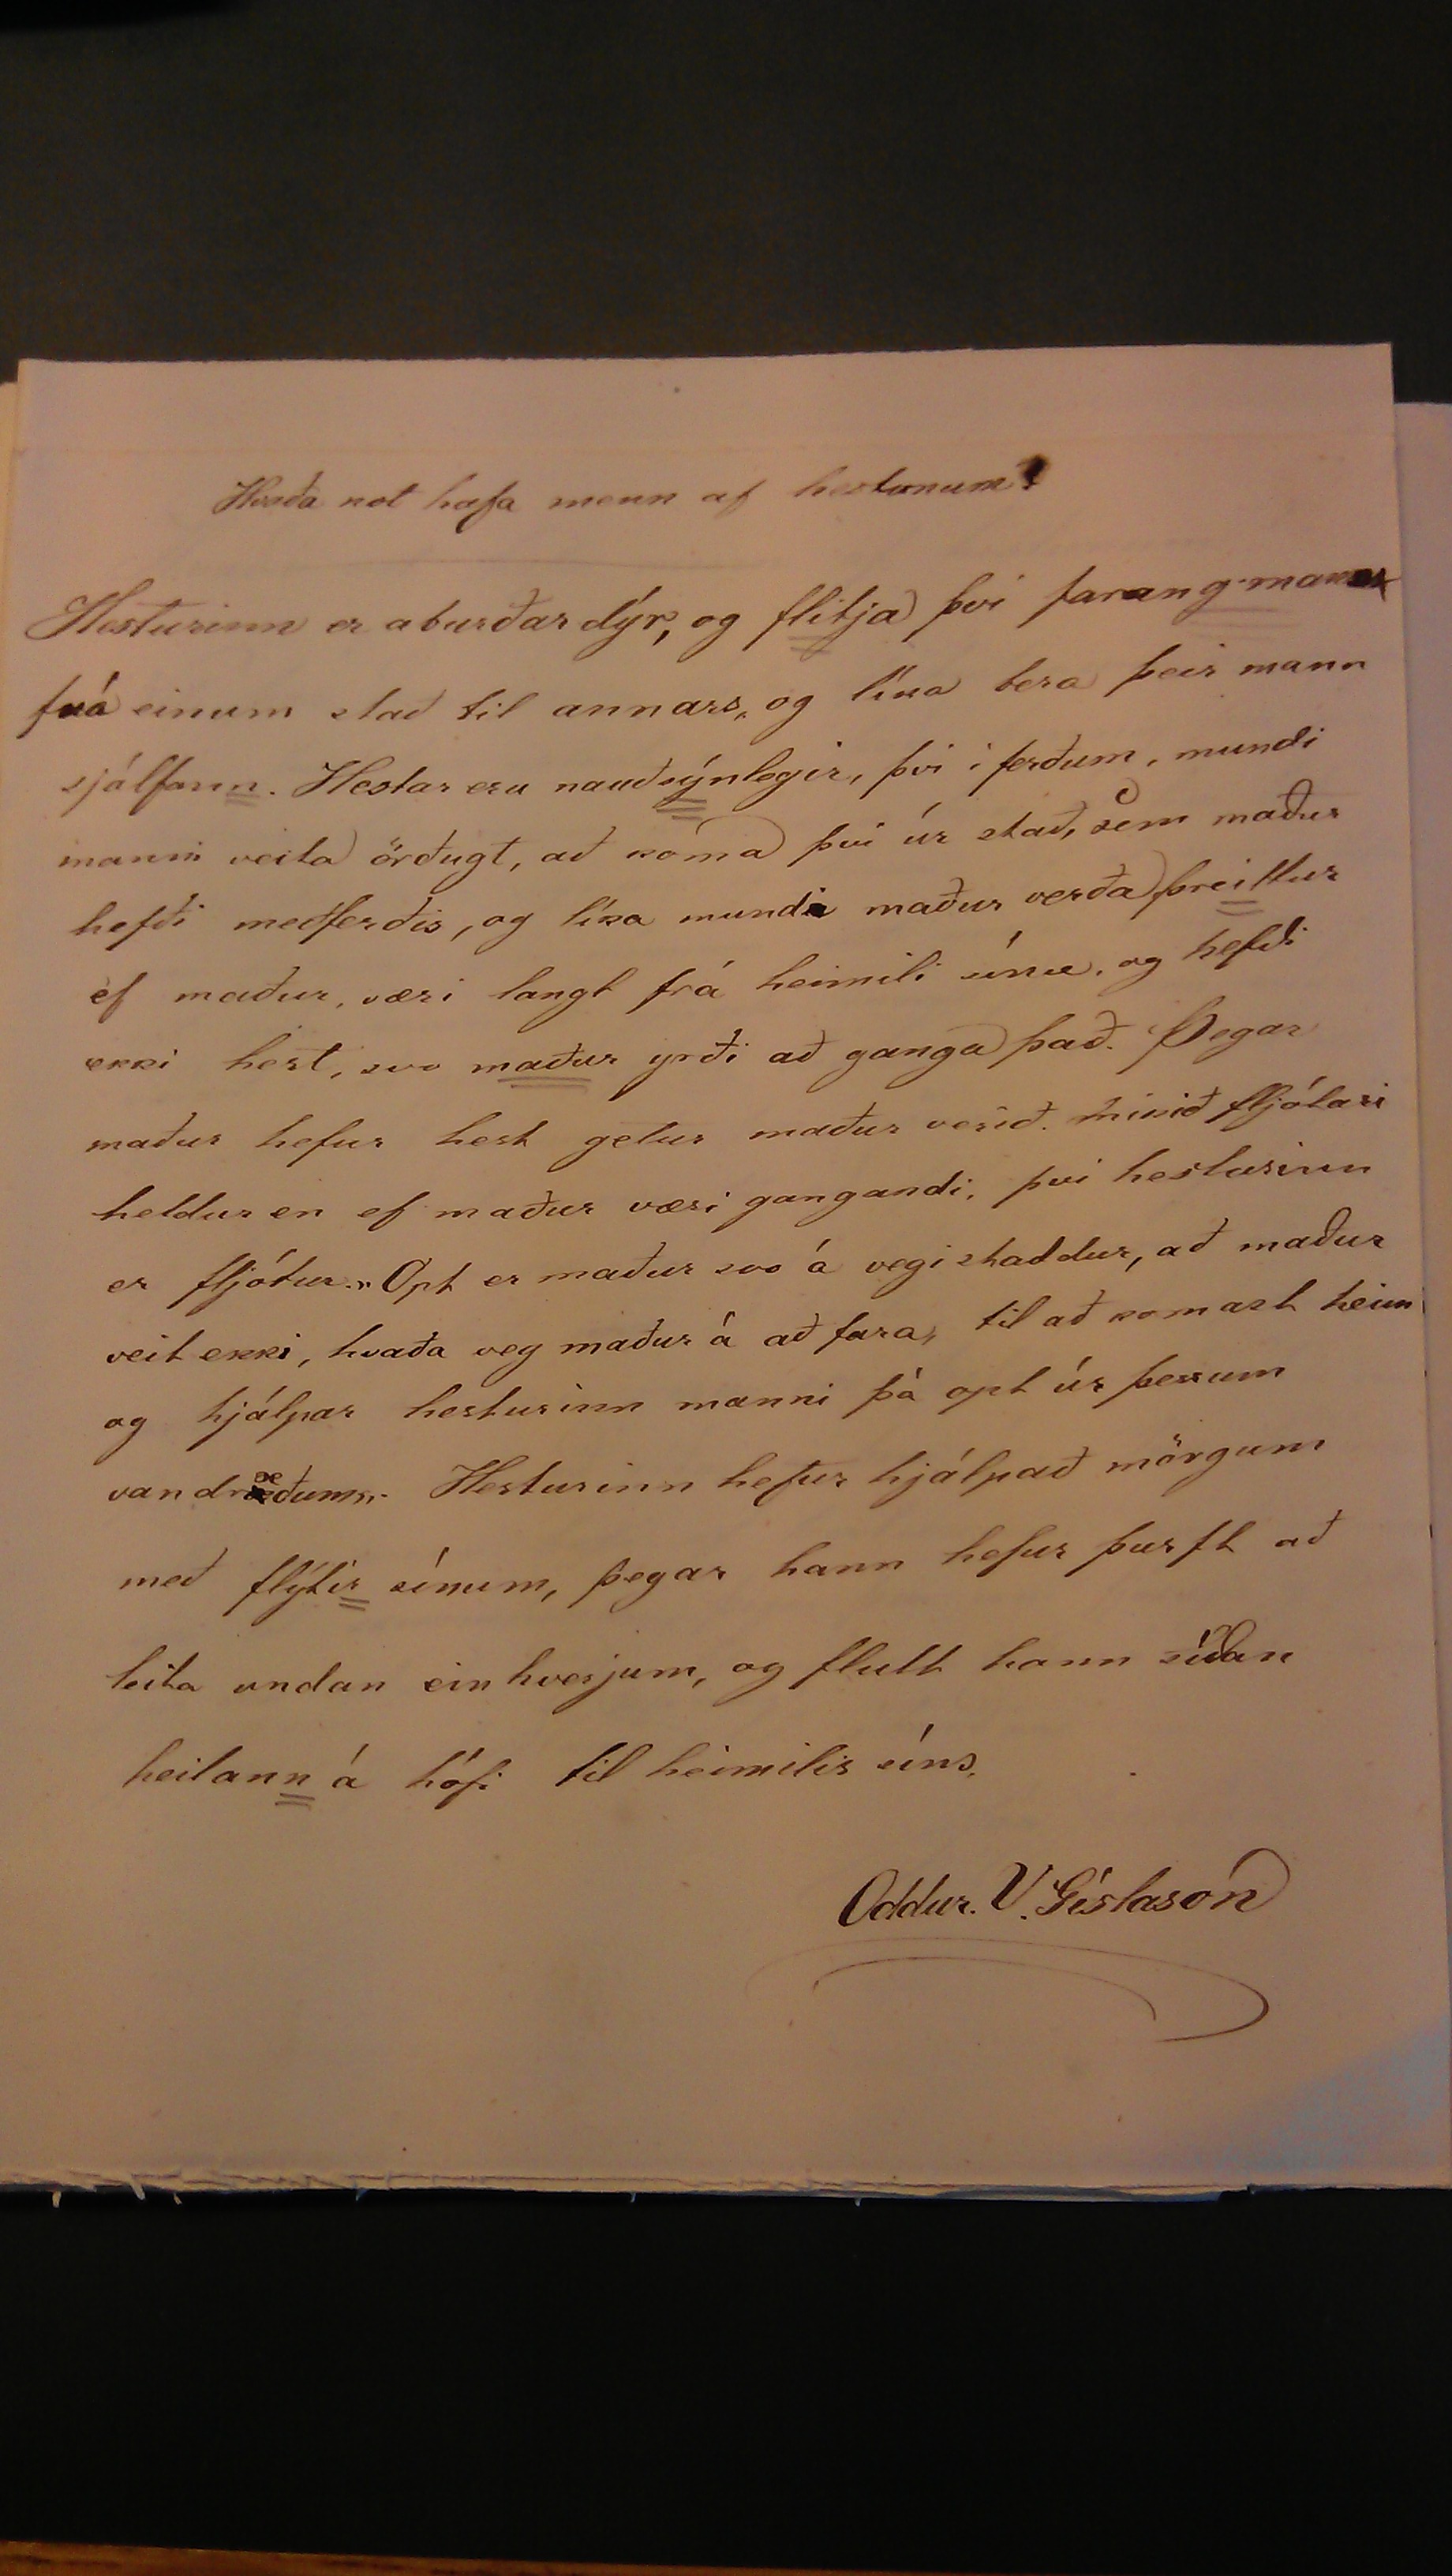 Hvaða not hafa menn af hestonum?
Hesturinn er aburðar dýr, og flitja því farang manns
frá einum stað til annars, og líka bera þeir mann
sjálfann. Hestar eru nauðsýnlegir, því i ferðum, mundi
manni veita örðugt, að koma því úr stað, sem maður
hefði meðferðis, og líka mundi maður verða þreittur
ef maður, væri langt frá heimili sínu, og hefði
ekki hest, svo maður yrði að ganga það. Þegar
maður hefur hest getur maður verið mikið fljótari
heldur en ef maður væri gangandi, því hesturinn
er fljótur. Opt er maður svo á vegi staddur, að maður
veit ekki, hvaða veg maður á að fara, til að komast heim
og hjálpar hesturinn manni þá opt úr þessum
vandræðum. Hesturinn hefur hjálpað mörgum
með flýtir sínum, þegar hann hefur þurft að
leita undan einhverjum, og flutt hann síðan
heilann á hófi til heimilis síns.
Oddur. V. Gíslason